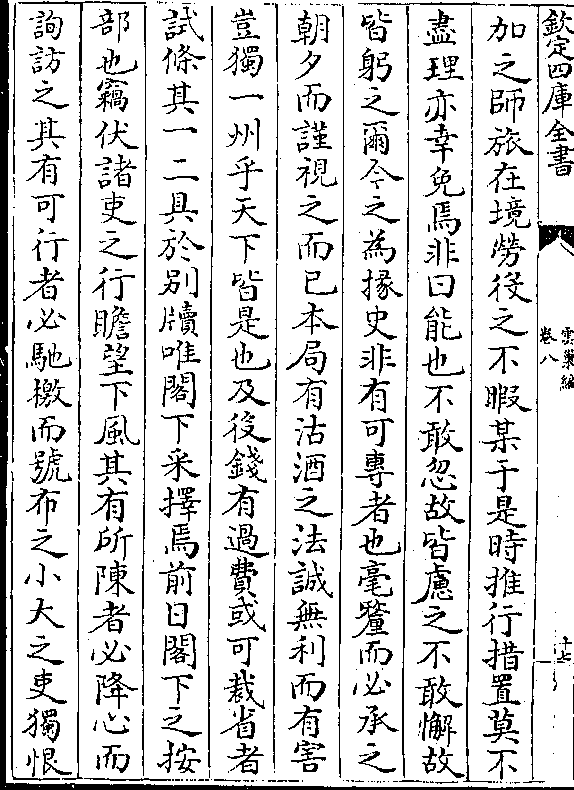 欽定四庫全書
雲巢編
卷八
十七
加之師旅在境勞役之不暇某于是時推行措置莫不
盡理亦幸免焉非曰能也不敢忽故皆慮之不敢懈故
皆躬之爾今之為掾史非有可專者也毫釐而必承之
朝夕而謹視之而已本局有沽酒之法誠無利而有害
豈獨一州乎天下皆是也及後錢有過費或可裁省者
試條其一二具於別牘唯閣下采擇焉前日閣下之按
部也竊伏諸吏之行瞻望下風其有所陳者必降心而
詢訪之其有可行者必馳檄而號布之小大之吏獨恨